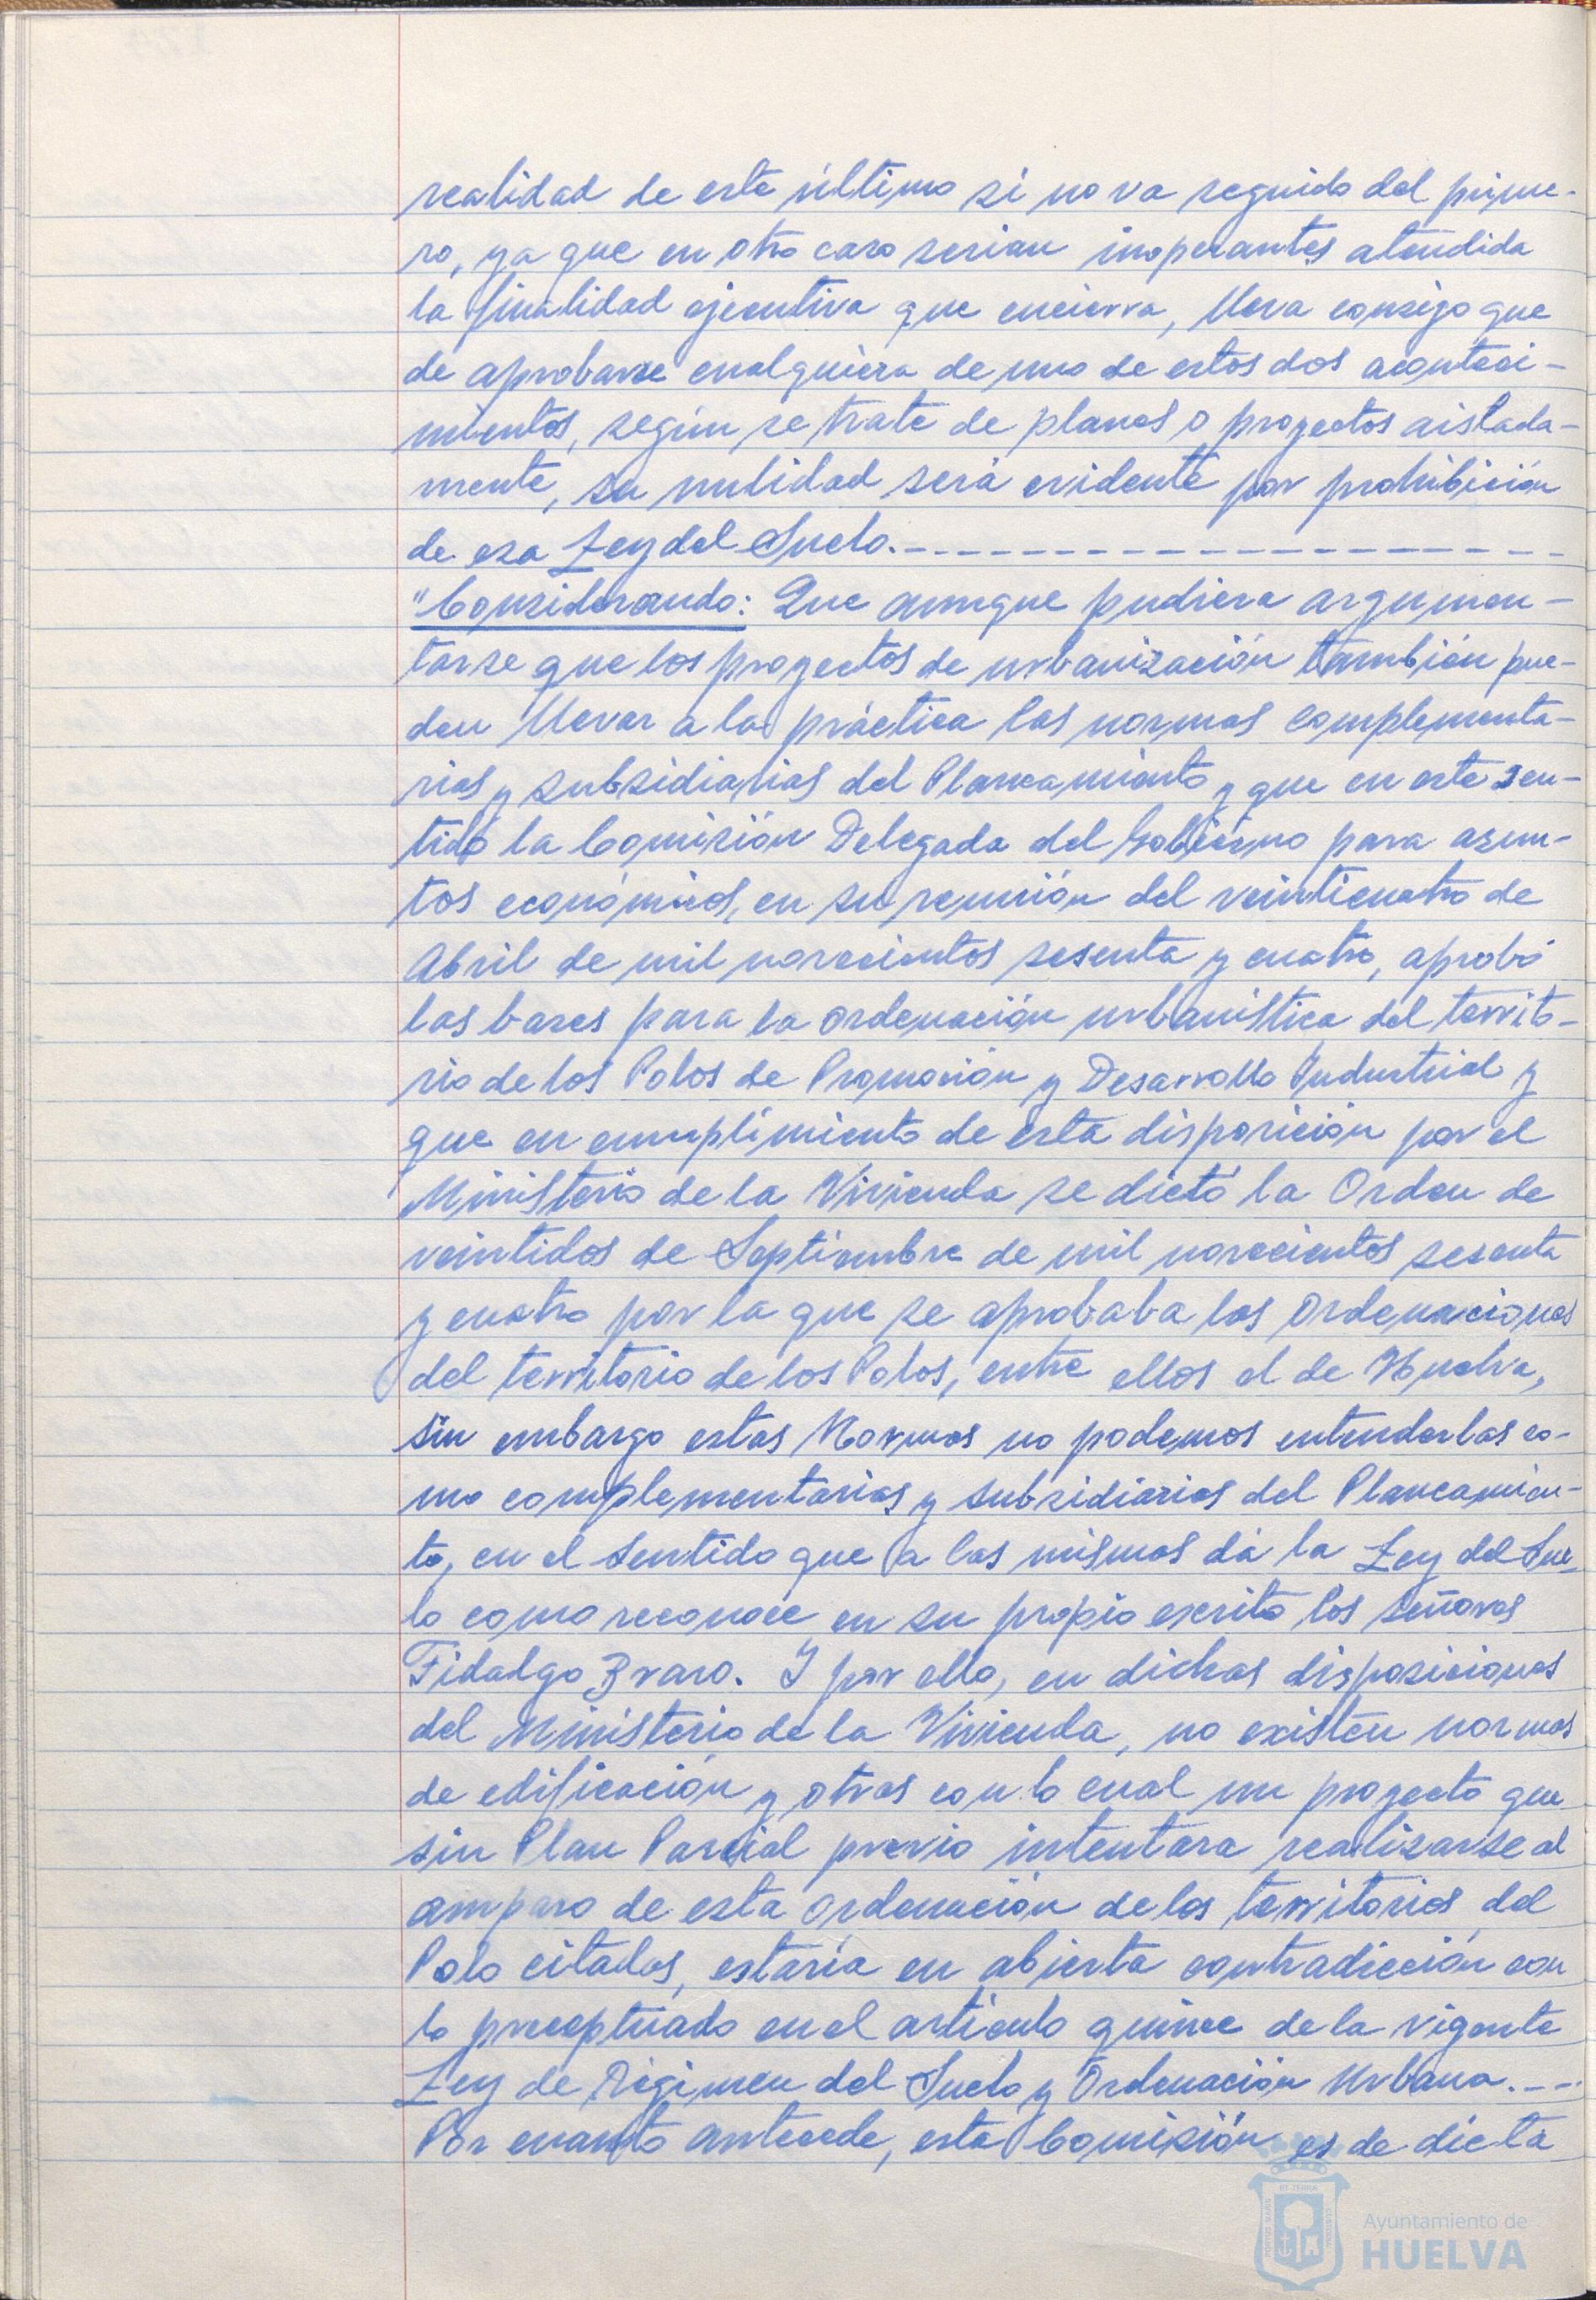 realidad de este último si no va seguido del prime-
ro, ya que en otro caso serian inoperantes atendida
la finalidad ejecutiva que encierra, lleva consigo que
de aprobarse cualquiera de uno de estos dos aconteci-
mientos, según se trate de planes o proyectos aislada-
mente, su nulidad será evidente por prohibición
de esa Ley del Suelo.
"Considerando: Que aunque pudiera argumen-
tarse que los proyectos de urbanización también pue-
den llevar a la práctica las normas complementa-
rias y subsidiarias del Planeamiento y que en este sen-
tido la Comisión Delegada del Gobierno para asun-
tos económicos, en su reunión del veinticuatro de
Abril de mil novecientos sesenta y cuatro, aprobó
las bases para la ordenación urbanística del territo-
rio de los Polos de Promoción y Desarrollo Industrial y
que en cumplimiento de esta disposición por el
Ministerio de la Vivienda se dictó la Orden de
veintidos de Septiembre de mil novecientos sesenta
y cuatro por la que se aprobaba las Ordenaciones
del territorio de los Polos, entre ellos el de Huelva,
sin embargo estas Normas no podemos entenderlas co-
mo complementarias y subsidiarias del Planeamien-
to, en el sentido que a las mismas dá la Ley del Sue-
lo como reconoce en su propio escrito los señores
Fidalgo Bravo. Y por ello, en dichas disposiciones
del Ministerio de la Vivienda, no existen normas
de edificación y otras con lo cual un proyecto que
sin Plan Parcial previo intentara realizarse al
amparo de esta ordenación de los territorios del
Polo citados, estaría en abierta contradicción con
lo preceptuado en el artículo quince de la vigente
Ley de Régimen del Suelo y Ordenación Urbana.
Por cuanto antecede, esta Comisión es de dicta
Ayuntamiento de
HUELVA